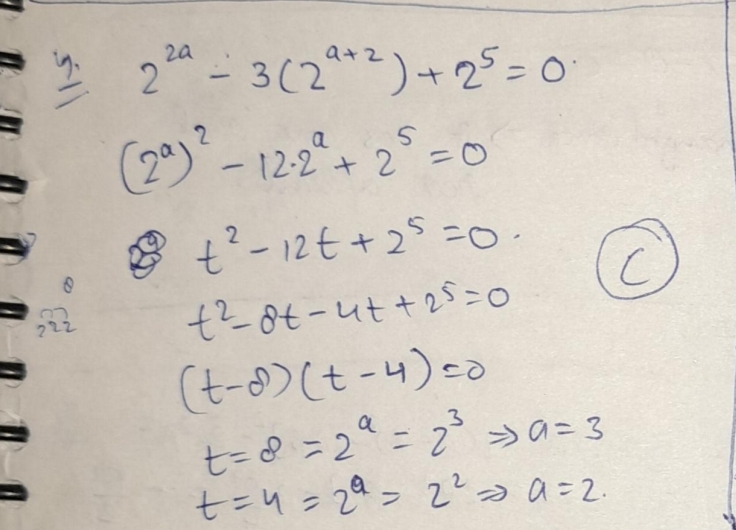 2^{2a} - 3(2^{a+2}) + 2^5 = 0.
(2^a)^2 - 12·2^a + 2^5 = 0
t^2 - 12t + 2^5 = 0.
C
t^2 - 8t - 4t + 2^5 = 0
8
222
(t-8)(t-4) = 0
t = 8 = 2^a = 2^3 ⇒ a = 3
t = 4 = 2^a = 2^2 ⇒ a = 2.